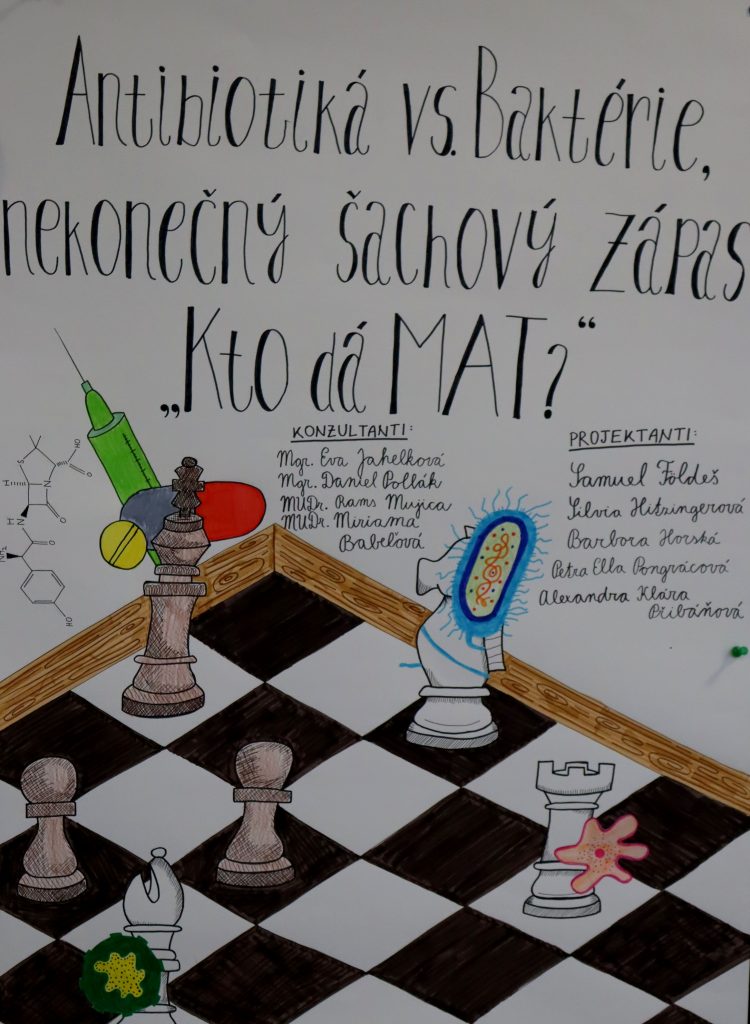 Antibiotiká vs. Baktérie,
nekonečný šachový zápas
„Kto dá MAT?“
KONZULTANTI:
Mgr. Eva Jahelková
Mgr. Daniel Pollák
MUDr. Rams Mujica
MUDr. Miriama
Babeľová
PROJEKTANTI:
Samuel Földeš
Silvia Hitzingerová
Barbora Horská
Petra Ella Pongrácová
Alexandra Klára
Pribáňová
HO
S
H
N
O
O
H
N
O
NH₂
HO